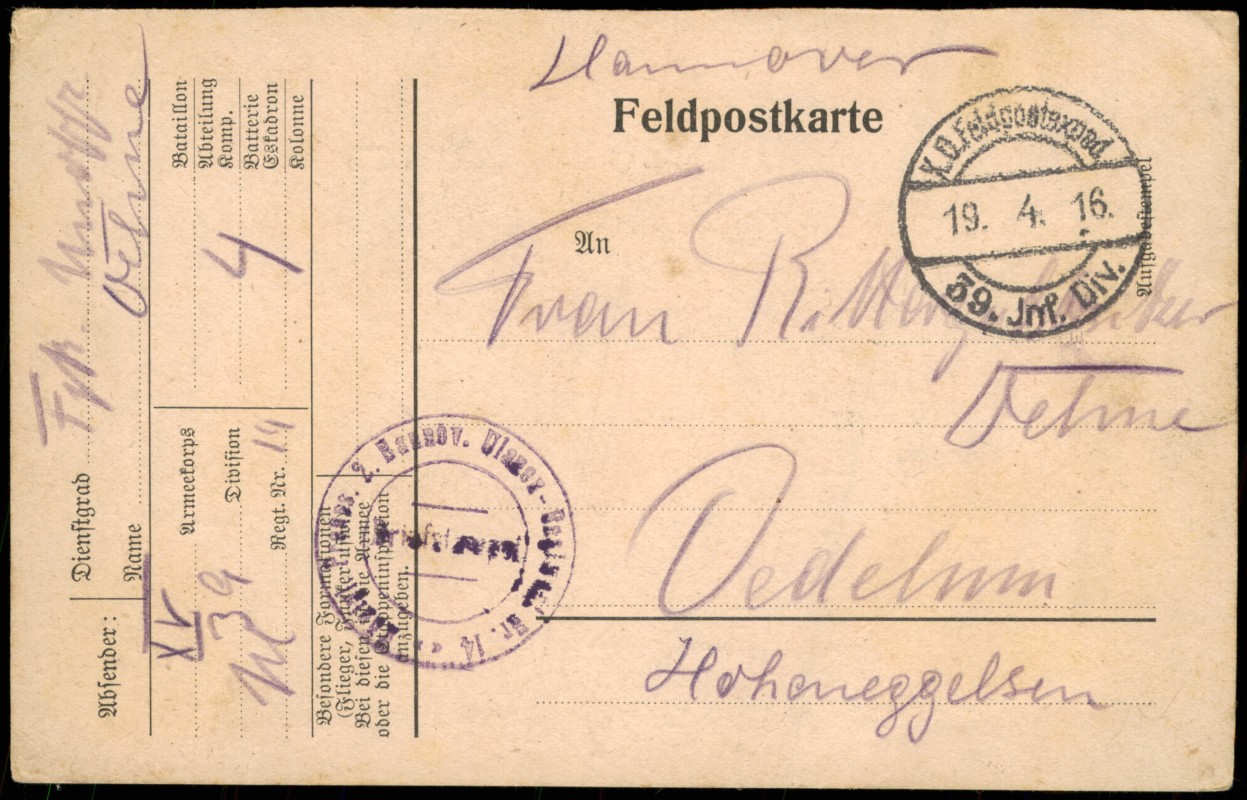 Hannover
Feldpostkarte
K.D. Feldpostexped.
19. 4. 16.
39. Inf. Div.
Aufgabestempel
An
Frau
Oehme
Oedelum
Hoheneggelsen
Absender:
Dienstgrad
Name
Oehme
XV Armeekorps
39 Division
Regt. Nr. 14
Bataillon
Abteilung
Komp.
4 Batterie
Eskadron
Kolonne
Besondere Formationen
(Flieger, Funker usw.)
Bei diesen ist die Armee
oder die Etappeninspektion
anzugeben.
2. Hannov. Ulanen-Regiment Nr. 14
Briefstempel